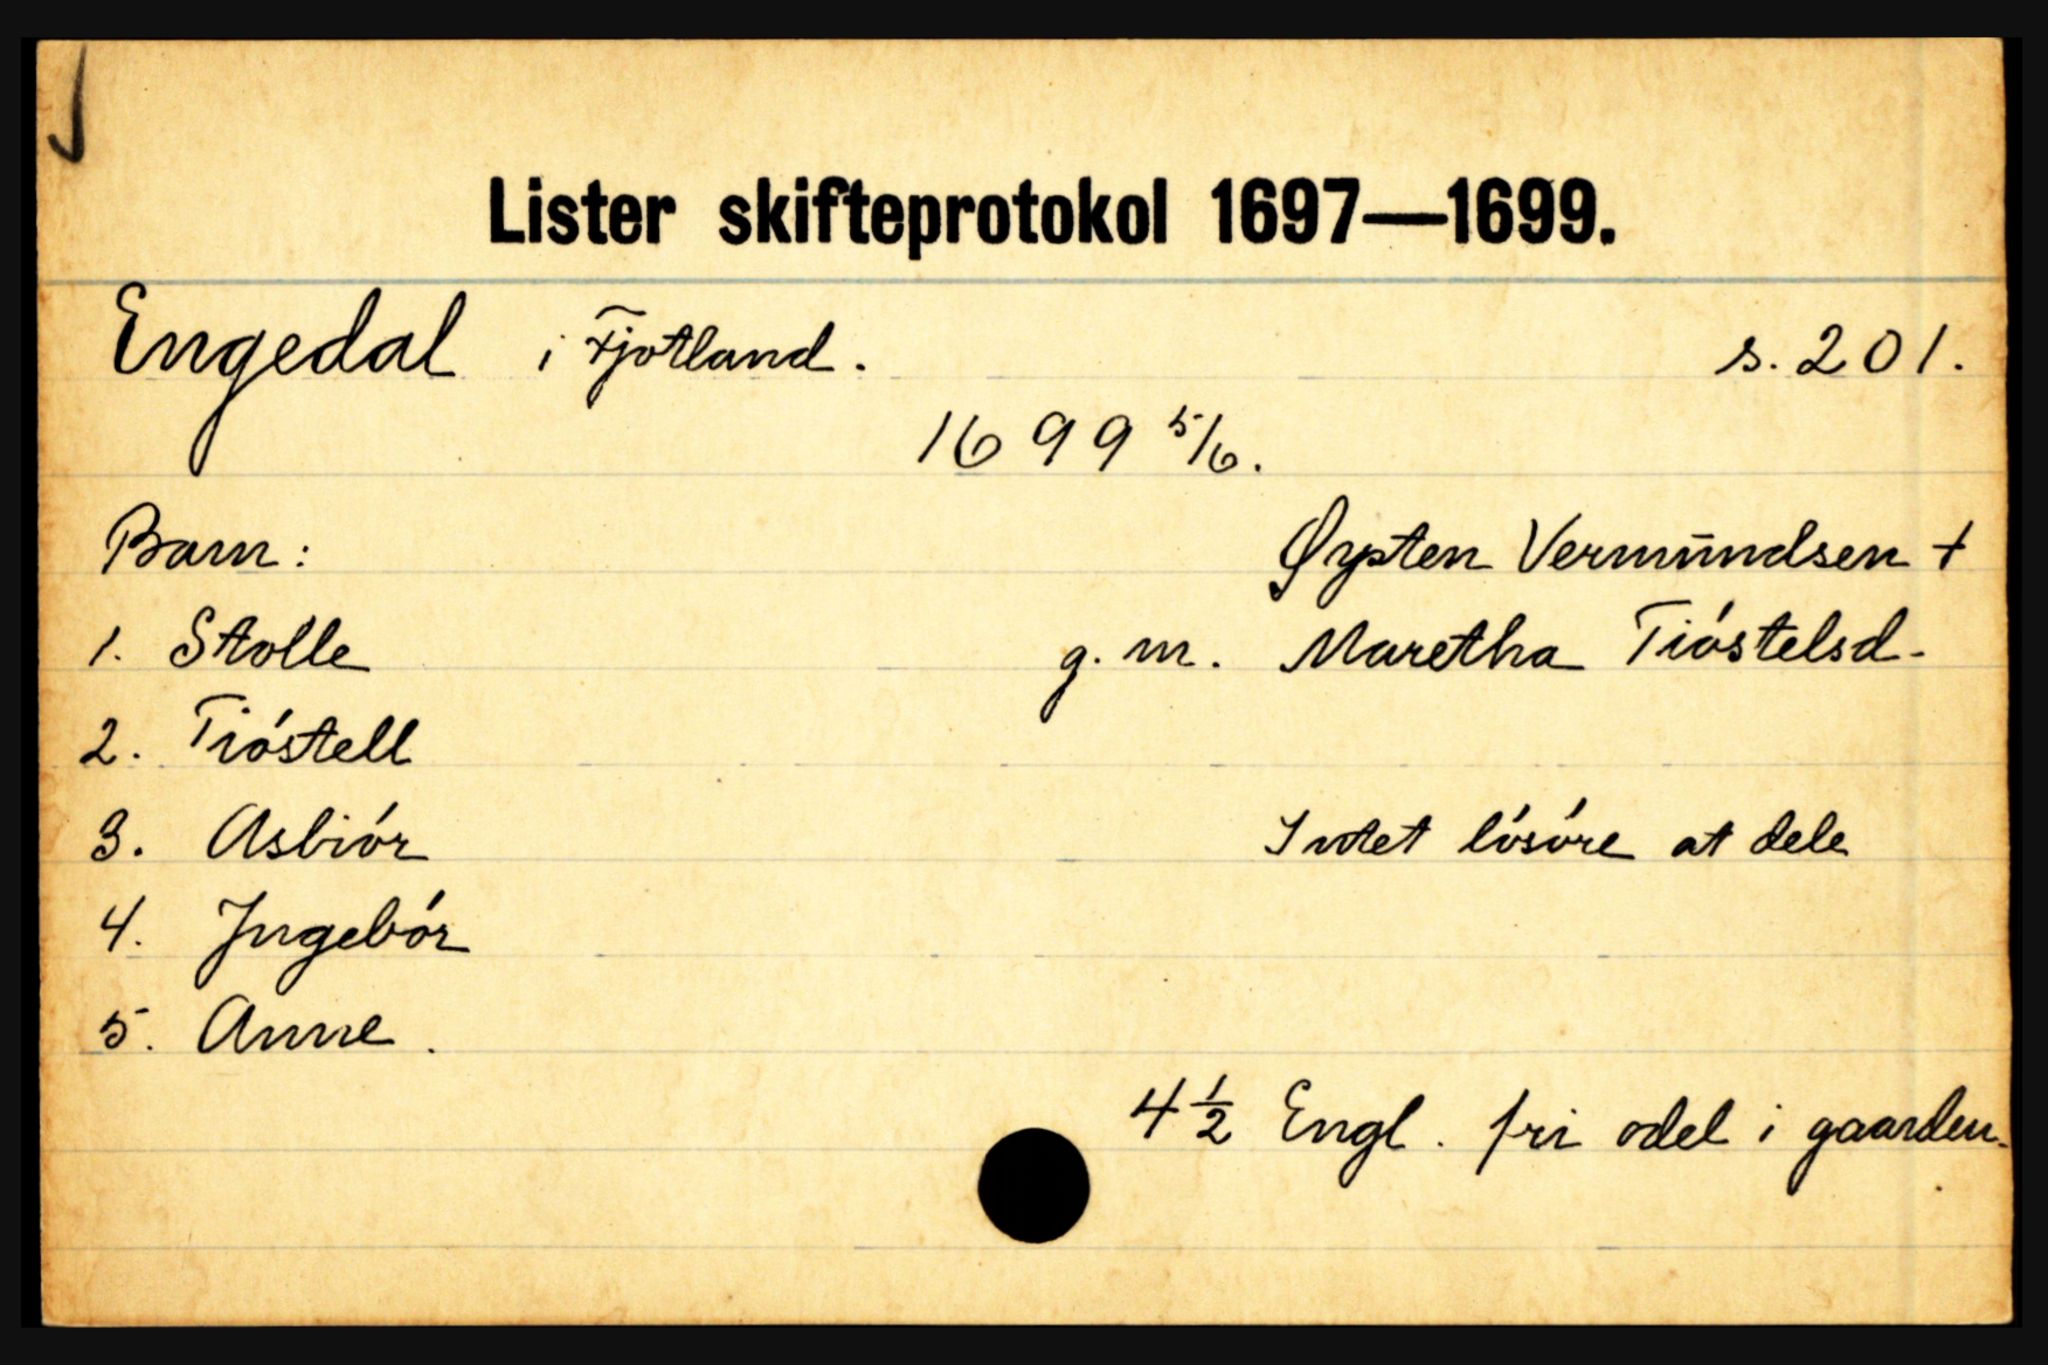 Lister skifteprotokol 1697—1699.
Engedal i Fjotland. s. 201.
1699 5/6.
Barn: Øysten Vermŭndsen +
1. Stolle g. m. Maretha Tióstelsd.
2. Tióstell
3. Asbiór Intet lósóre at dele
4. Ingebór
5. Anne.
4 1/2 Engl. fri odel i gaarden.